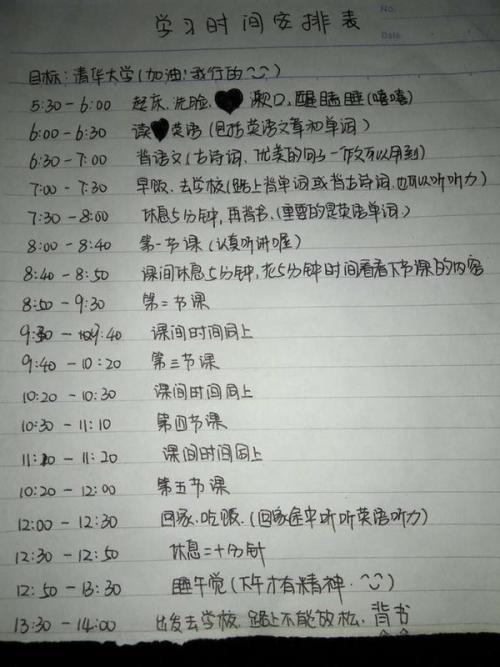 No.
Date.
学习时间安排表
目标:清华大学(加油!我行的)
5:30-6:00 起床、洗脸、漱口、醒瞌睡(嘻嘻)
6:00-6:30 读英语(包括英语文章和单词)
6:30-7:00 背语文(古诗词、优美的句子一作文可以用到)
7:00-7:30 早饭、去学校(路上背单词或背古诗词、也可以听听力)
7:30-8:00 休息5分钟,再背书.(重要的是英语单词.)
8:00-8:40 第一节课(认真听讲喔)
8:40-8:50 课间休息5分钟,花5分钟时间看看下节课的内容
8:50-9:30 第二节课
9:30-9:40 课间时间同上
9:40-10:20 第三节课
10:20-10:30 课间时间同上
10:30-11:10 第四节课
11:10-11:20 课间时间同上
10:20-12:00 第五节课
12:00-12:30 回家、吃饭、(回家途中听听英语听力)
12:30-12:50 休息二十分针
12:50-13:30 睡午觉(下午才有精神)
13:30-14:00 出发去学校、路上不能放松、背书